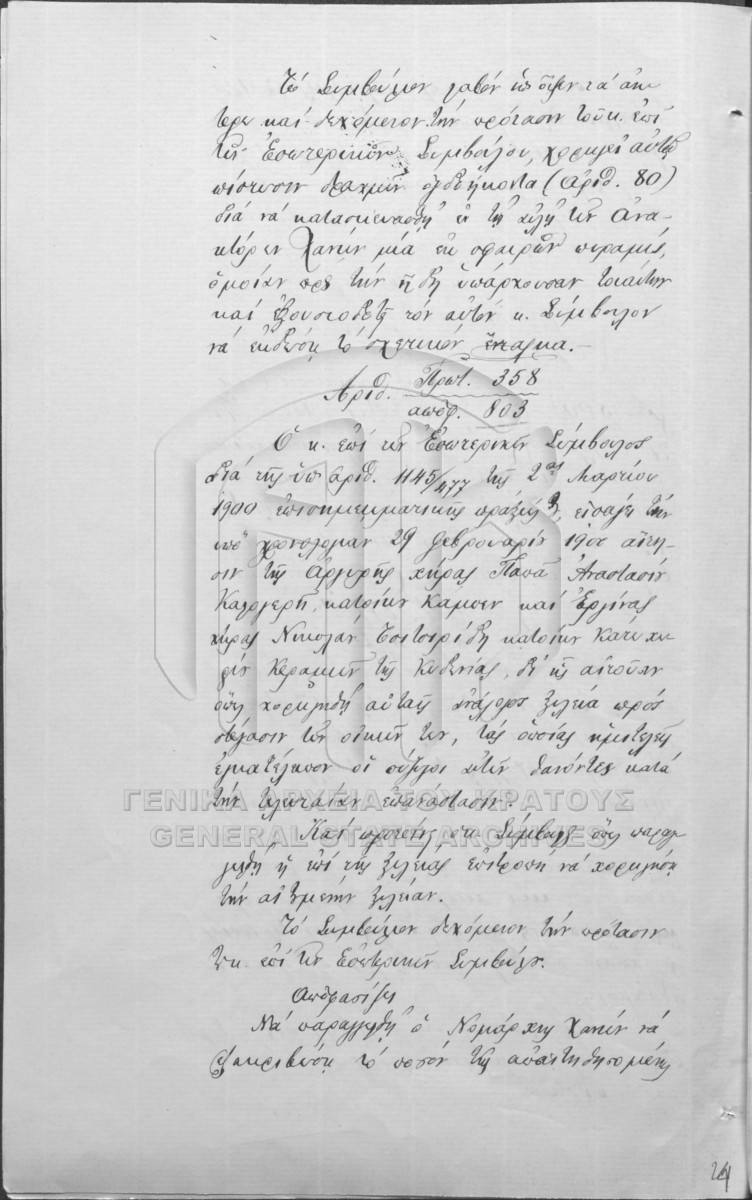 Τὸ Συμβούλιον λαβὸν ὑπ' ὄψιν τὰ ἀνω-
τέρω καὶ δεχόμενον τὴν πρότασιν τοῦ κ. ἐπὶ
τῶν Ἐσωτερικῶν Συμβούλου, χορηγεῖ αὐτῷ
πίστωσιν δραχμῶν ὀγδοήκοντα (ἀριθ. 80)
διὰ νὰ κατασκευασθῇ ἐν τῇ αὐλῇ τῶν Ἀνα-
κτόρων Χανίων μία ἐκ σφαιρῶν πυραμίς,
ὁμοίαν πρὸς τὴν ἤδη ὑπάρχουσαν τοιαύτην
καὶ ἐξουσιοδοτεῖ τὸν αὐτὸν κ. Σύμβουλον
νὰ ἐκδώσῃ τὸ σχετικὸν ἔνταλμα.-
Ἀριθ. Πρωτ. 358
ἀποφ. 803
Ὁ κ. ἐπὶ τῶν Ἐσωτερικῶν Σύμβουλος
διὰ τῆς ὑπ' ἀριθ. 1145/477 τῆς 2ας Μαρτίου
1900 ἐπισημειωματικῆς πράξεώς του, εἰσάγει τὴν
ὑπὸ χρονολογίαν 29 Φεβρουαρίου 1900 αἴτη-
σιν τῆς Ἀργυρῆς χήρας Παπᾶ Ἀναστασίου
Καλογερῆ, κατοίκου Κάμπων καὶ Ἐργίνας
χήρας Νικολάου Τσιτσιρίδη κατοίκου Κάτω χω-
ρίου Κεραμειῶν τῆς Κυδωνίας, δι' ἧς αἰτοῦσιν
ὅπως χορηγηθῇ αὐταῖς ἀνάλογος ξυλεία πρὸς
στέγασιν τῶν οἰκιῶν των, τὰς ὁποίας ἡμιτελεῖς
ἐγκατέλιπον οἱ σύζυγοι αὐτῶν θανόντες κατὰ
τὴν τελευταίαν ἐπανάστασιν.
Καὶ προτείνει ὁ κ. Σύμβουλος ὅπως παραγ-
γελθῇ ἡ ἐπὶ τῆς ξυλείας ἐπιτροπὴ νὰ χορηγήσῃ
τὴν αἰτουμένην ξυλείαν.
Τὸ Συμβούλιον δεχόμενον τὴν πρότασιν
τοῦ κ. ἐπὶ τῶν Ἐσωτερικῶν Συμβούλου.
Ἀποφασίζει
Νὰ παραγγελθῇ ὁ Νομάρχης Χανίων νὰ
ἐξακριβώσῃ τὸ ποσὸν τῆς ἀπαιτηθησομένης
ΓΕΝΙΚΑ ΑΡΧΕΙΑ ΤΟΥ ΚΡΑΤΟΥΣ
GENERAL STATE ARCHIVES